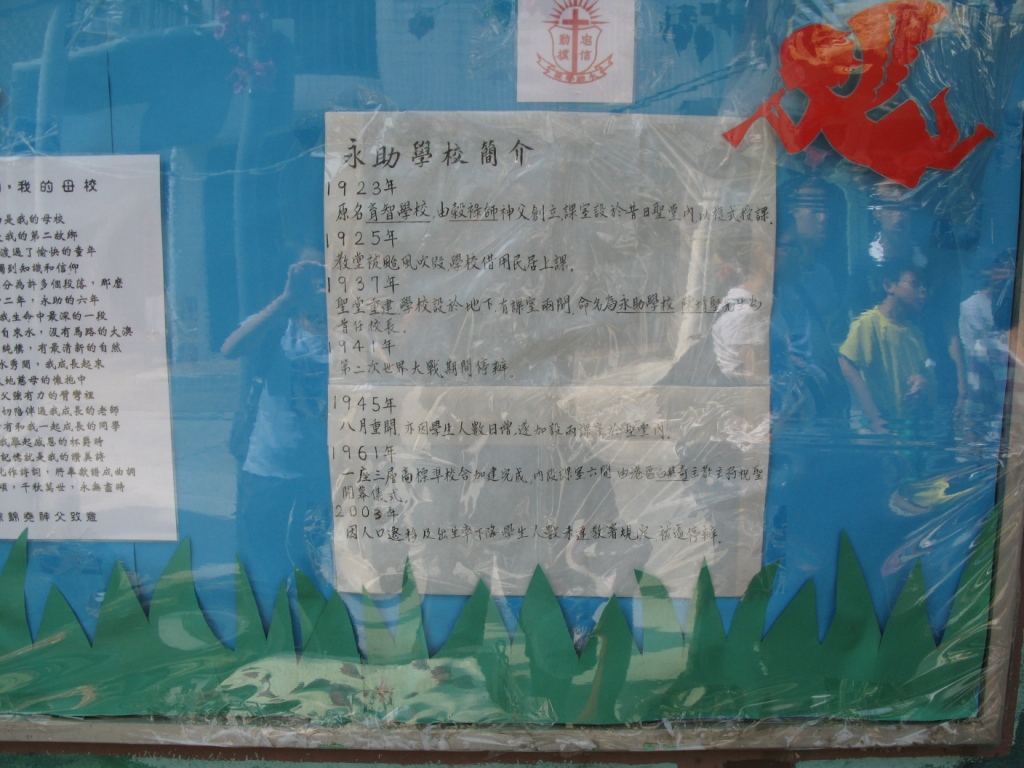 忠信
勤樸
永助學校簡介
1923年
原名育智學校,由 神父創立課室設於昔日聖堂內以複式授課.
1925年
教堂被颱風吹毀,學校借用民居上課.
1937年
聖堂重建學校設於地下,有課室兩間,命名為永助學校
首任校長.
1941年
第二次世界大戰期間停辦.
1945年
八月重開 亦因學生人數日增,遂加設兩課室於聖堂內.
1961年
一座三層高標準校舍加建完成,內設課室六間 由港區白英奇主教主持祝聖
開幕儀式.
2003年
因人口遷移及出生率下降 學生人數未達教署規定 被逼停辦.
,我的母校
是我的母校
我的第二故鄉
渡過了愉快的童年
到知識和信仰
分為許多個段落,那麼
十二年,永助的六年
我生命中最深的一段
自來水,沒有馬路的大澳
純樸,有最清新的自然
水秀間,我成長起來
大地慈母的懷抱中
父強有力的臂彎裡
切陪伴過我成長的老師
有和我一起成長的同學
我舉起感恩的杯爵時
記憶就是我的讚美詩
化作詩詞,所有敘語成曲調
頌,千秋萬世,永無盡時
錦堯神父致意